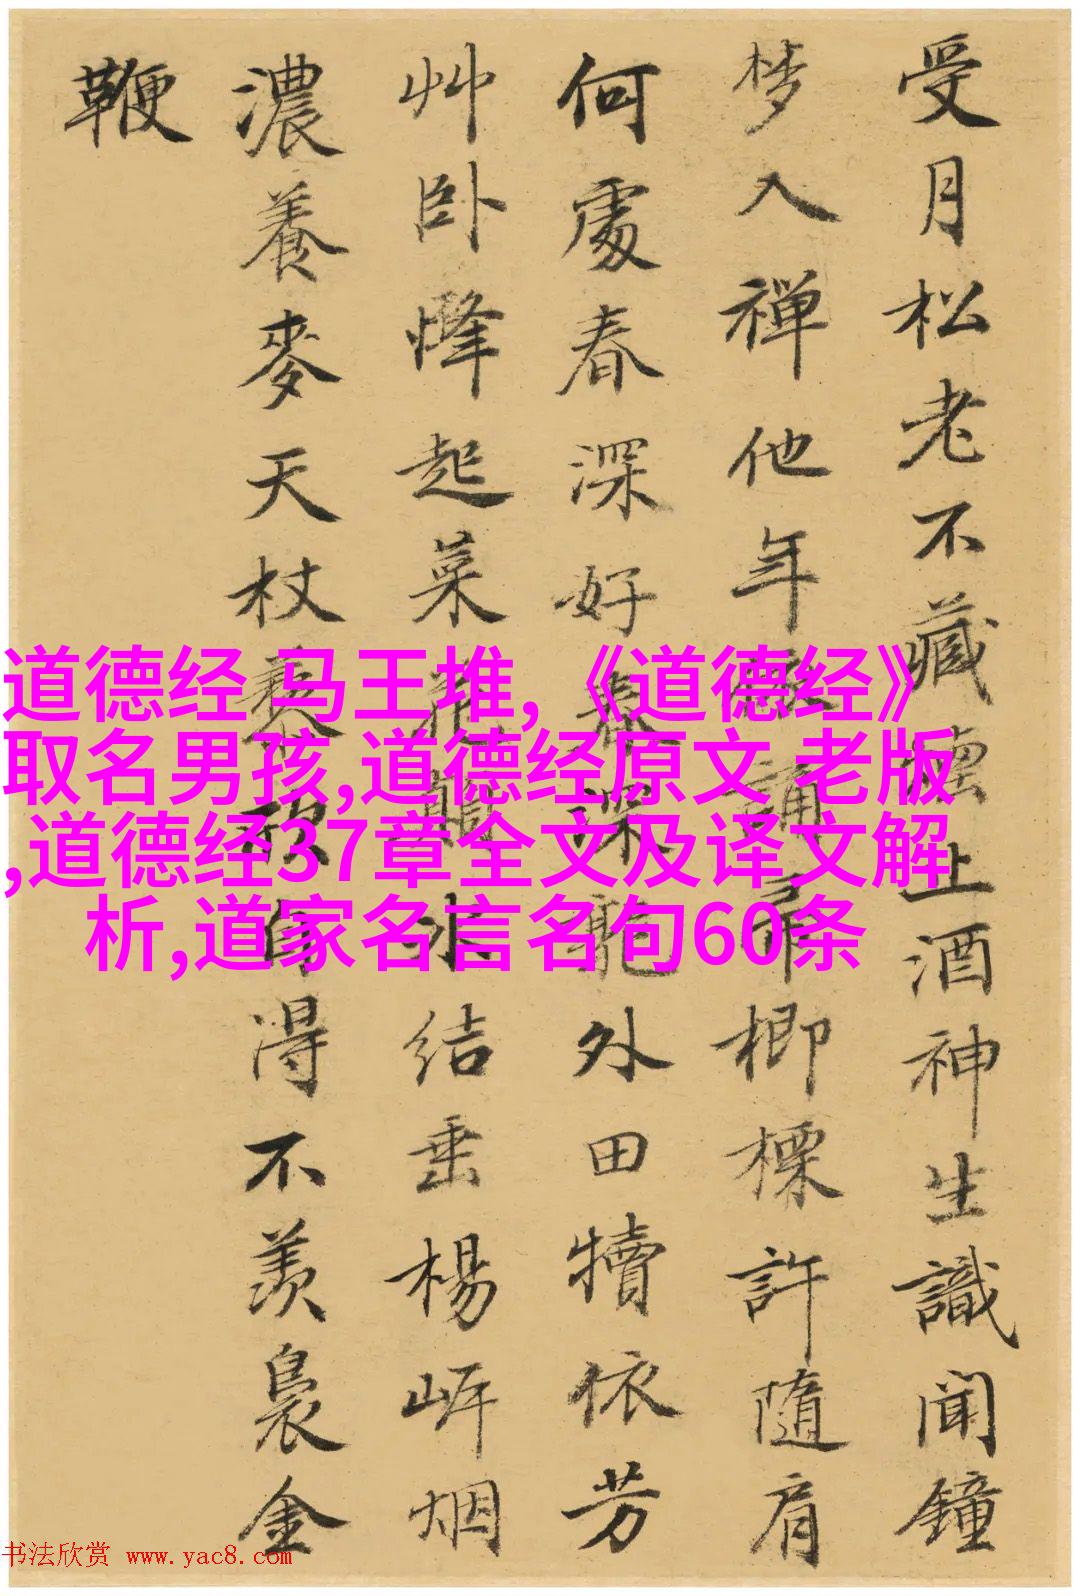 受月松老不藏上酒神生識聞鐘
梦入禅他年誦榔標許隨肩
何處春深好春深外田犢依芳
艸卧起菜水結垂楊岍烟
濃養麥天杖藜自得不羨裊金
鞭
道德经 马王堆,《道德经》
取名男孩,道德经原文 老版
,道德经37章全文及译文解
析,道家名言名句60条
书法欣赏 www.yac8.com